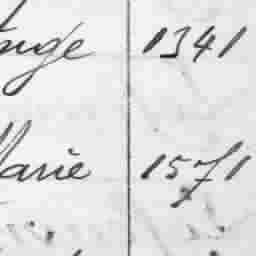 ange 1341
Marie 1571